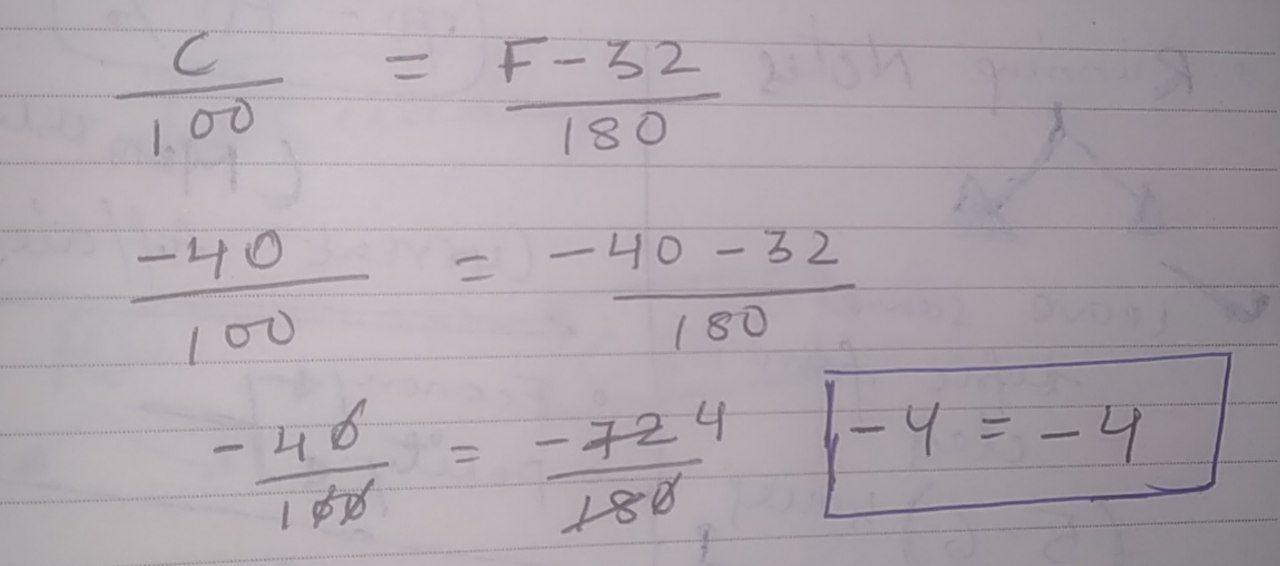 C/100 = F - 32/180
-40/100 = -40 - 32/180
-40/100 = -72 4/180 -4 = -4